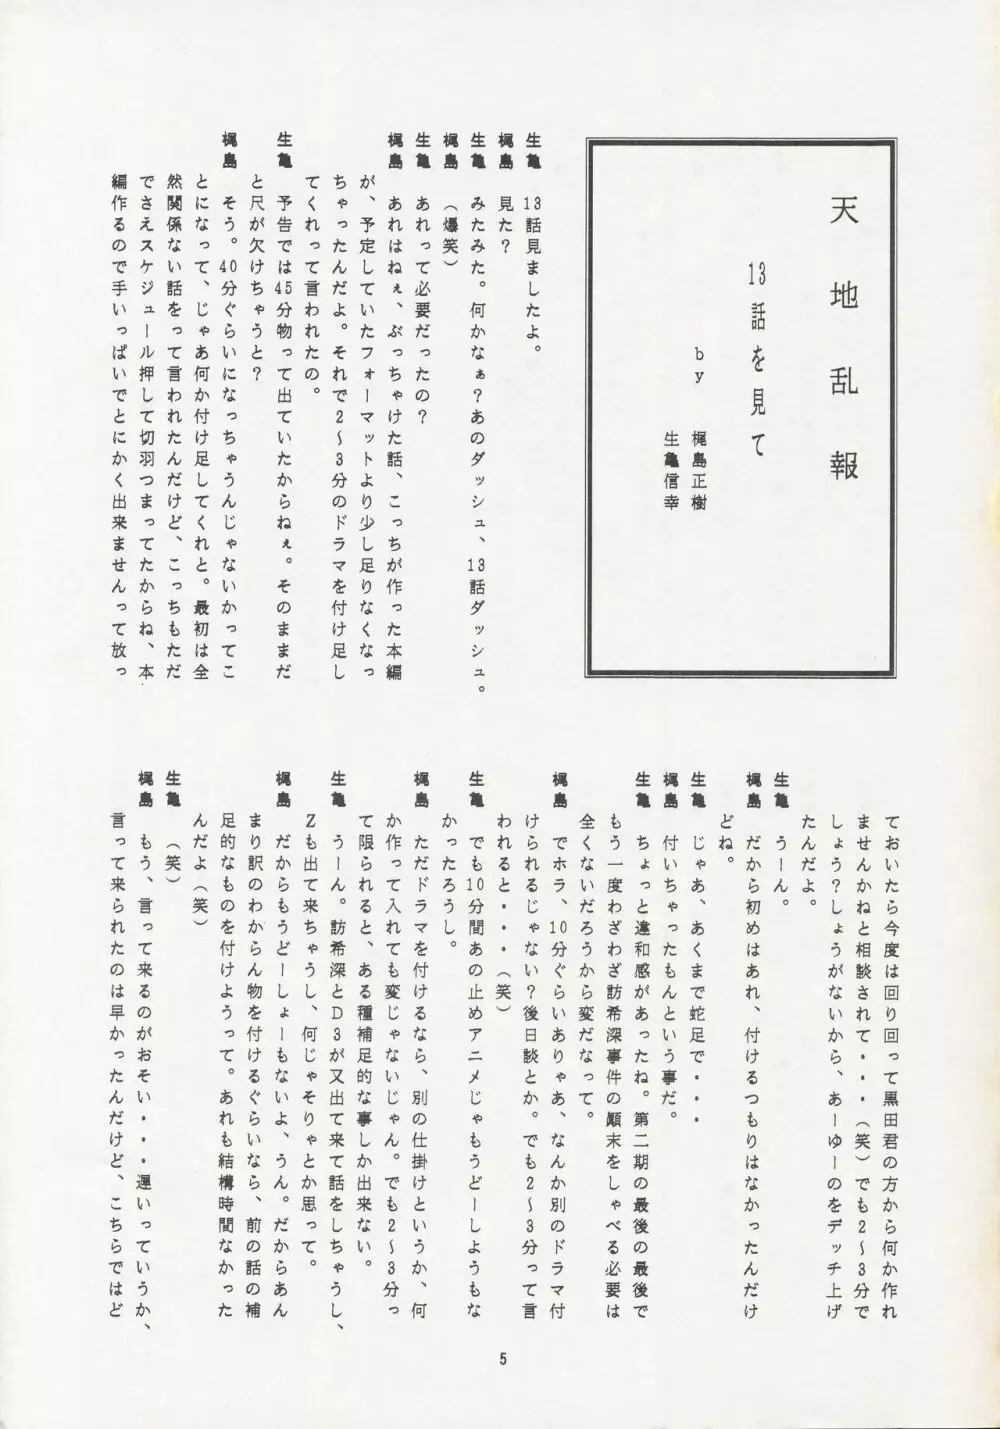 天地乱報
13話を見て
by 梶島正樹
生亀信幸
生亀 13話見ましたよ。
梶島 見た?
生亀 みたみた。何かなぁ?あのダッシュ、13話ダッシュ。
梶島 (爆笑)
生亀 あれって必要だったの?
梶島 あれはねぇ、ぶっちゃけた話、こっちが作った本編
が、予定していたフォーマットより少し足りなくなっ
ちゃったんだよ。それで2~3分のドラマを付け足し
てくれって言われたの。
生亀 予告では45分物って出ていたからねぇ。そのままだ
と尺が欠けちゃうと?
梶島 そう。40分ぐらいになっちゃうんじゃないかってこ
とになって、じゃあ何か付け足してくれと。最初は全
然関係ない話をって言われたんだけど、こっちもただ
でさえスケジュール押して切羽つまってたからね、本
編作るので手いっぱいでとにかく出来ませんって放っ
ておいたら今度は回り回って黒田君の方から何か作れ
ませんかねと相談されて・・・(笑)でも2~3分で
しょう?しょうがないから、あーゆーのをデッチ上げ
たんだよ。
生亀 うーん。
梶島 だから初めはあれ、付けるつもりはなかったんだけ
どね。
生亀 じゃあ、あくまで蛇足で・・・
梶島 付いちゃったもんという事だ。
生亀 ちょっと違和感があったね。第二期の最後の最後で
もう一度わざわざ訪希深事件の顛末をしゃべる必要は
全くないだろうから変だなって。
梶島 でホラ、10分ぐらいありゃあ、なんか別のドラマ付
けられるじゃない?後日談とか。でも2~3分って言
われると・・・(笑)
生亀 でも10分間あの止めアニメじゃもうどーしようもな
かったろうし。
梶島 ただドラマを付けるなら、別の仕掛けというか、何
か作って入れても変じゃないじゃん。でも2~3分っ
て限られると、ある種補足的な事しか出来ない。
生亀 うーん。訪希深とD3が又出て来て話をしちゃうし、
Zも出て来ちゃうし、何じゃそりゃとか思って。
梶島 だからもうどーしょーもないよ、うん。だからあん
まり訳のわからん物を付けるぐらいなら、前の話の補
足的なものを付けようって。あれも結構時間なかった
んだよ(笑)
生亀 (笑)
梶島 もう、言って来るのがおそい・・・遅いっていうか、
言って来られたのは早かったんだけど、こちらではど
5